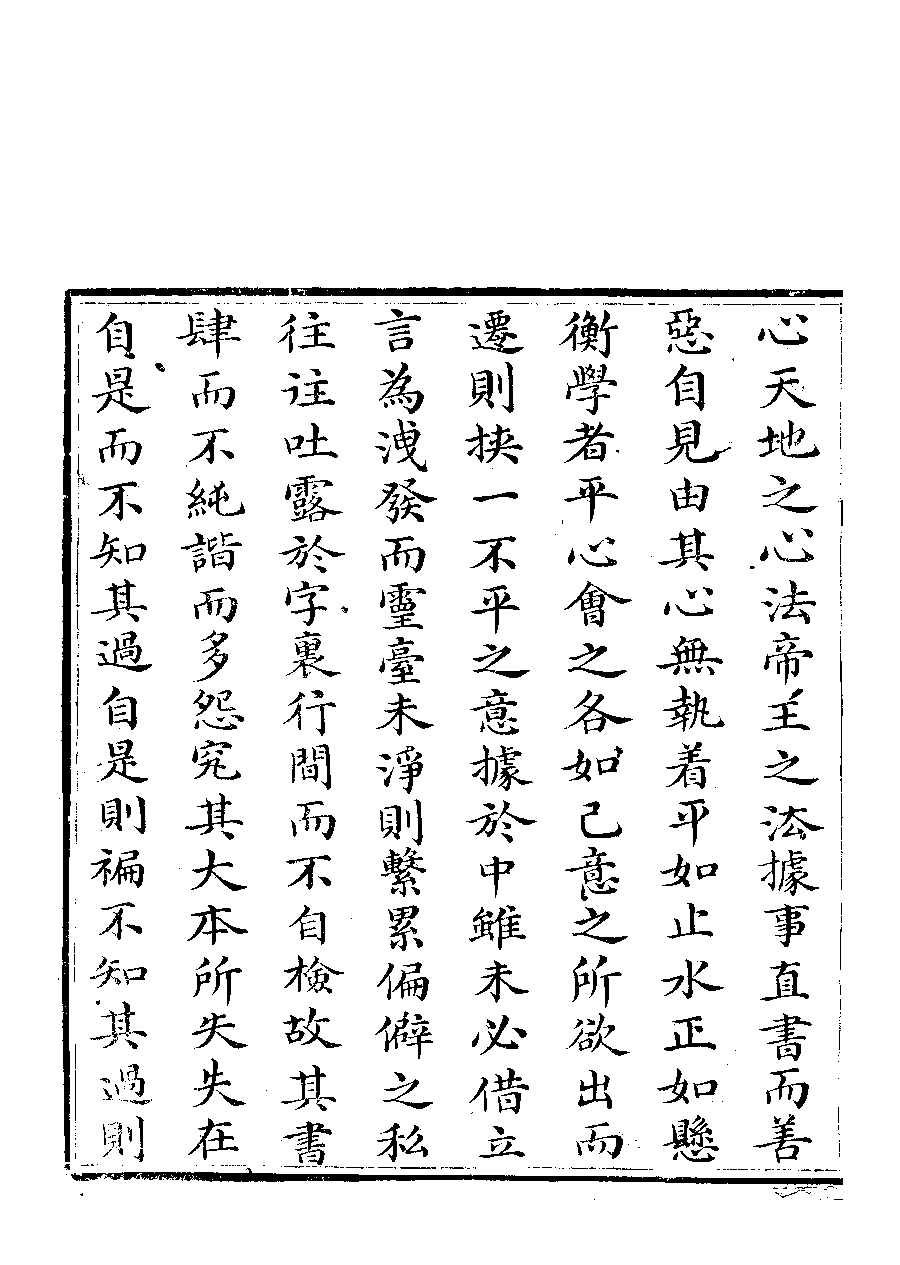 心天地之心法帝王之法據事直書而善
惡自見由其心無執着平如止水正如懸
衡學者平心會之各如己意之所欲出而
遷則挟一不平之意據於中雖未必借立
言為洩發而靈臺未淨則繫累偏僻之私
往往吐露於字裏行間而不自檢故其書
肆而不純諧而多怨究其大本所失失在
自是而不知其過自是則褊不知其過則